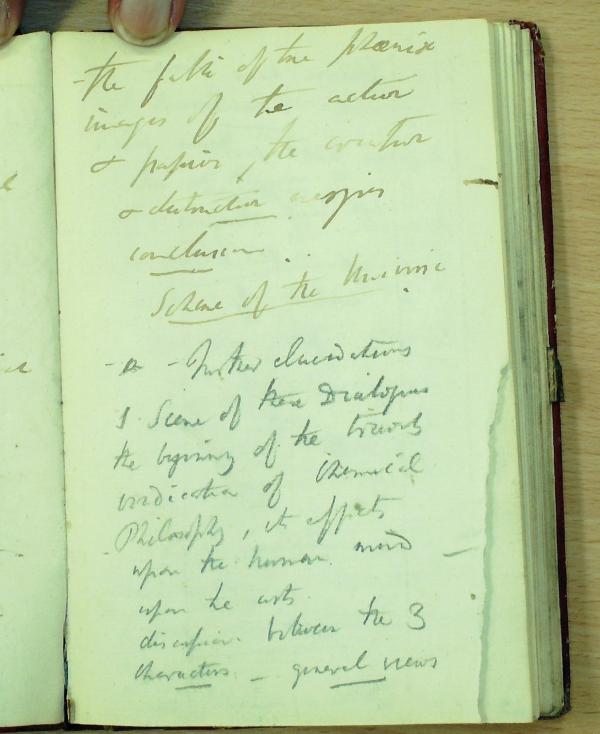 the fable of the phœnix
images of the action
& passion, the creation
& destruction
conclusion
Scheme of the Universe
- Further elucidations
1 Scene of these Dialogues
the beginning of the travels
vindication of Chemical
Philosophy, its effects
upon the human mind
upon the arts.
discussion between the 3
characters - general views